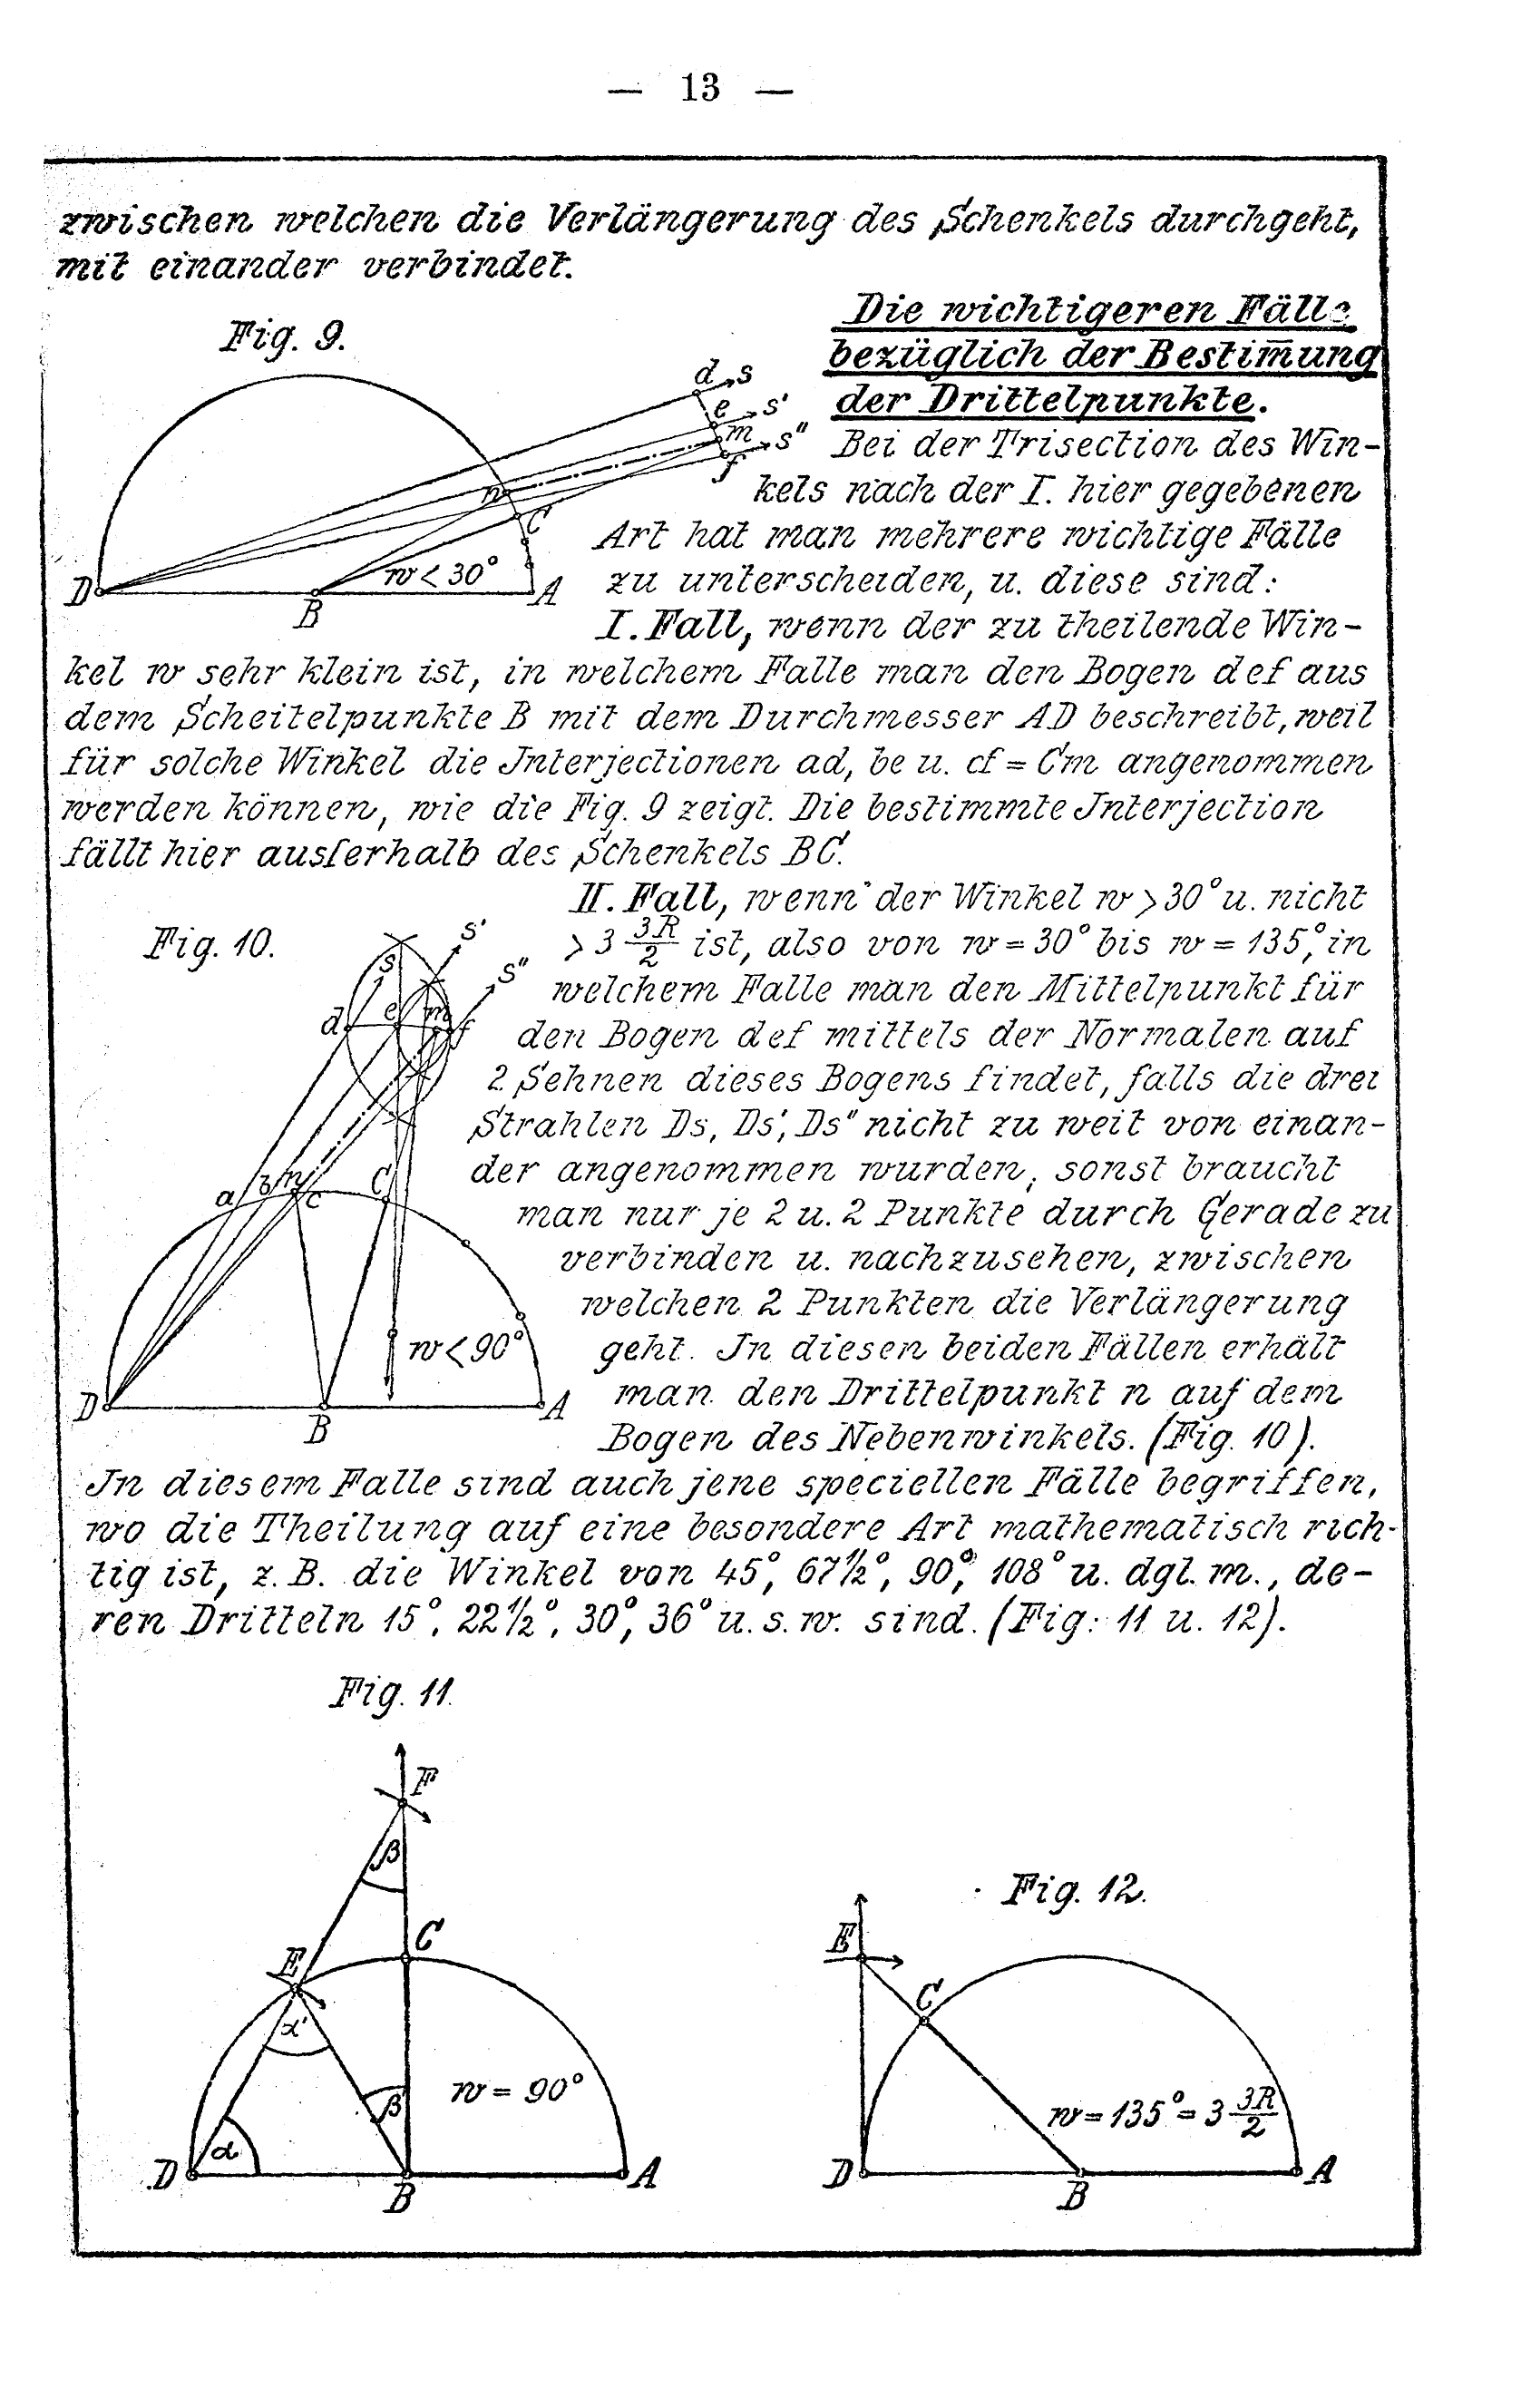 — 13 —
zwischen welchen die Verlängerung des Schenkels durchgeht,
mit einander verbindet.
Die wichtigeren Fälle
bezüglich der Bestim̄ung
der Drittelpunkte.
Bei der Trisection des Win-
kels nach der I. hier gegebenen
Art hat man mehrere wichtige Fälle
zu unterscheiden, u. diese sind:
I. Fall, wenn der zu theilende Win-
kel w sehr klein ist, in welchem Falle man den Bogen def aus
dem Scheitelpunkte B mit dem Durchmesser AD beschreibt, weil
für solche Winkel die Interjectionen ad, be u. cf = Cm angenommen
werden können, wie die Fig. 9 zeigt. Die bestimmte Interjection
fällt hier ausſerhalb des Schenkels BC.
Fig. 9.
d s
e s'
m s"
f
n
C
w < 30°
D
B
A
II. Fall, wenn der Winkel w > 30° u. nicht
> 3 3R/2 ist, also von w = 30° bis w = 135°, in
welchem Falle man den Mittelpunkt für
den Bogen def mittels der Normalen auf
2 Sehnen dieses Bogens findet, falls die drei
Strahlen Ds, Ds', Ds" nicht zu weit von einan-
der angenommen wurden, sonst braucht
man nur je 2 u. 2 Punkte durch Gerade zu
verbinden u. nachzusehen, zwischen
welchen 2 Punkten die Verlängerung
geht. In diesen beiden Fällen erhält
man den Drittelpunkt n auf dem
Bogen des Nebenwinkels. (Fig. 10).
In diesem Falle sind auch jene speciellen Fälle begriffen,
wo die Theilung auf eine besondere Art mathematisch rich-
tig ist, z. B. die Winkel von 45°, 67½°, 90°, 108° u. dgl. m., de-
ren Dritteln 15°, 22½°, 30°, 36° u. s. w. sind. (Fig: 11 u. 12).
Fig. 10.
s'
s
s"
d e m f
a b n c C
w < 90°
D
B
A
Fig. 11.
F
β
C
E
α'
β
w = 90°
α
D
B
A
Fig. 12.
E
C
w = 135° = 3 3R/2
D
B
A